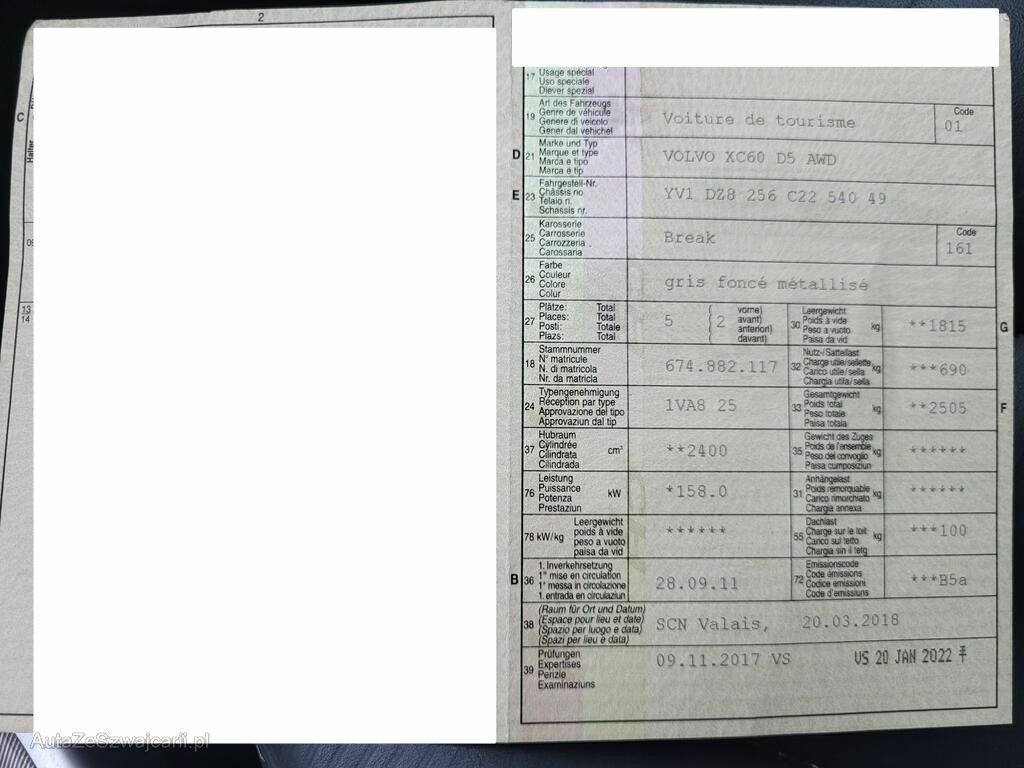 2
C
Halter
09
13
14
17
Usage spécial
Uso speciale
Diever spezial
19
Art des Fahrzeugs
Genre de véhicule
Genere di veicolo
Gener dal vehichel
Voiture de tourisme
Code
01
D 21
Marke und Typ
Marque et type
Marca e tipo
Marca e tip
VOLVO XC60 D5 AWD
E 23
Fahrgestell-Nr.
Châssis no
Telaio n.
Schassis nr.
YV1 DZ8 256 C22 540 49
25
Karosserie
Carrosserie
Carrozzeria
Carossaria
Break
Code
161
26
Farbe
Couleur
Colore
Colur
gris foncé métallisé
27
Plätze: Total
Places: Total
Posti: Totale
Plazs: Total
5
2
vorne)
avant)
anteriori)
davant)
30
Leergewicht
Poids à vide
Peso a vuoto
Paisa da vid
kg
**1815
G
18
Stammnummer
N° matricule
N. di matricola
Nr. da matricla
674.882.117
32
Nutz-/Sattellast
Charge utile/sellette
Carico utile/sella
Chargia utila/sella
kg
***690
24
Typengenehmigung
Réception par type
Approvazione del tipo
Approvaziun dal tip
1VA8 25
33
Gesamtgewicht
Poids total
Peso totale
Paisa totala
kg
**2505
F
37
Hubraum
Cylindrée
Cilindrata
Cilindrada
cm³
**2400
35
Gewicht des Zuges
Poids de l'ensemble
Peso del convoglio
Paisa cumposiziun
kg
******
76
Leistung
Puissance
Potenza
Prestaziun
kW
*158.0
31
Anhängelast
Poids remorquable
Carico rimorchiato
Chargia annexa
kg
******
78 kW/kg
Leergewicht
poids à vide
peso a vuoto
paisa da vid
******
55
Dachlast
Charge sur le toit
Carico sul tetto
Chargia sin il tetg
kg
***100
B 36
1. Inverkehrsetzung
1re mise en circulation
1a messa in circolazione
1. entrada en circulaziun
28.09.11
72
Emissionscode
Code émissions
Codice emissioni
Code d'emissiuns
***B5a
38
(Raum für Ort und Datum)
(Espace pour lieu et date)
(Spazio per luogo e data)
(Spazi per lieu e data)
SCN Valais, 20.03.2018
39
Prüfungen
Expertises
Perizie
Examinaziuns
09.11.2017 VS
VS 20 JAN 2022
AutaZeSzwajcarii.pl